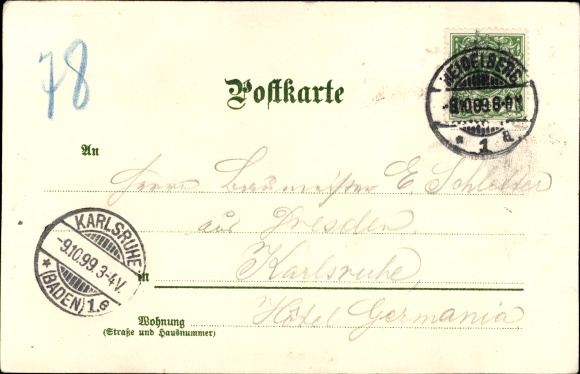 78
Postkarte
HEIDELBERG
10.99.6-9V.
* 1 a
An
Herrn Baumeister E. Schletter
aus Dresden
KARLSRUHE
-9.10.99.3-4V.
* (BADEN) 1.e
in Karlsruhe,
Wohnung
(Straße und Hausnummer)
Hôtel Germania